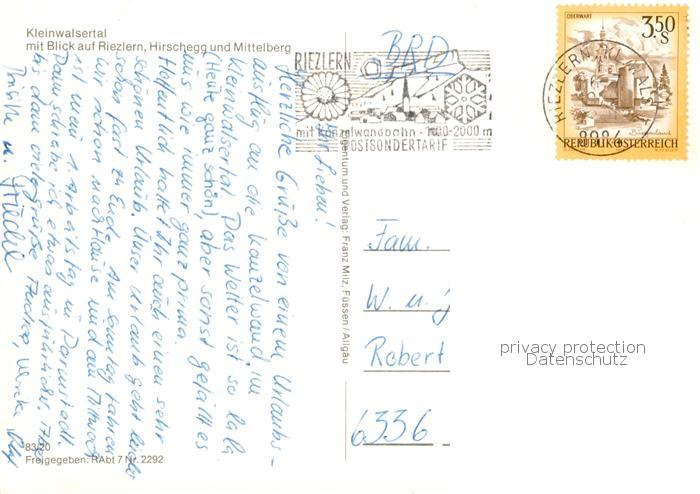 Kleinwalsertal
mit Blick auf Riezlern, Hirschegg und Mittelberg
BRD
RIEZLERN
mit Kanzelwandbahn - 1100-2000 m
POSTSONDERTARIF
OBERWART
3,50
S
Burgenland
REPUBLIK ÖSTERREICH
Ihr Lieben!
Herzliche Grüße von einem Urlaubs-
ausflug an die Kanzelwand im
Kleinwalsertal. Das Wetter ist so lala
(Heute ganz schön), aber sonst gefällt es
uns wie immer ganz prima.
Hoffentlich hattet Ihr auch einen sehr
schönen Urlaub. Unser Urlaub geht leider
schon fast zu Ende. Am Sonntag fahren
wir schon nach Hause und am Mittwoch
ist mein 1. Arbeitstag in Darmstadt.
Dann schreib ich etwas ausführlicher.
bis dann viele Grüße
u. Friedel
Eigentum und Verlag: Franz Milz, Füssen/Allgäu
Fam.
W. u. J
Robert
6336
privacy protection
Datenschutz
83/20
Freigegeben: RAbt 7 Nr. 2292